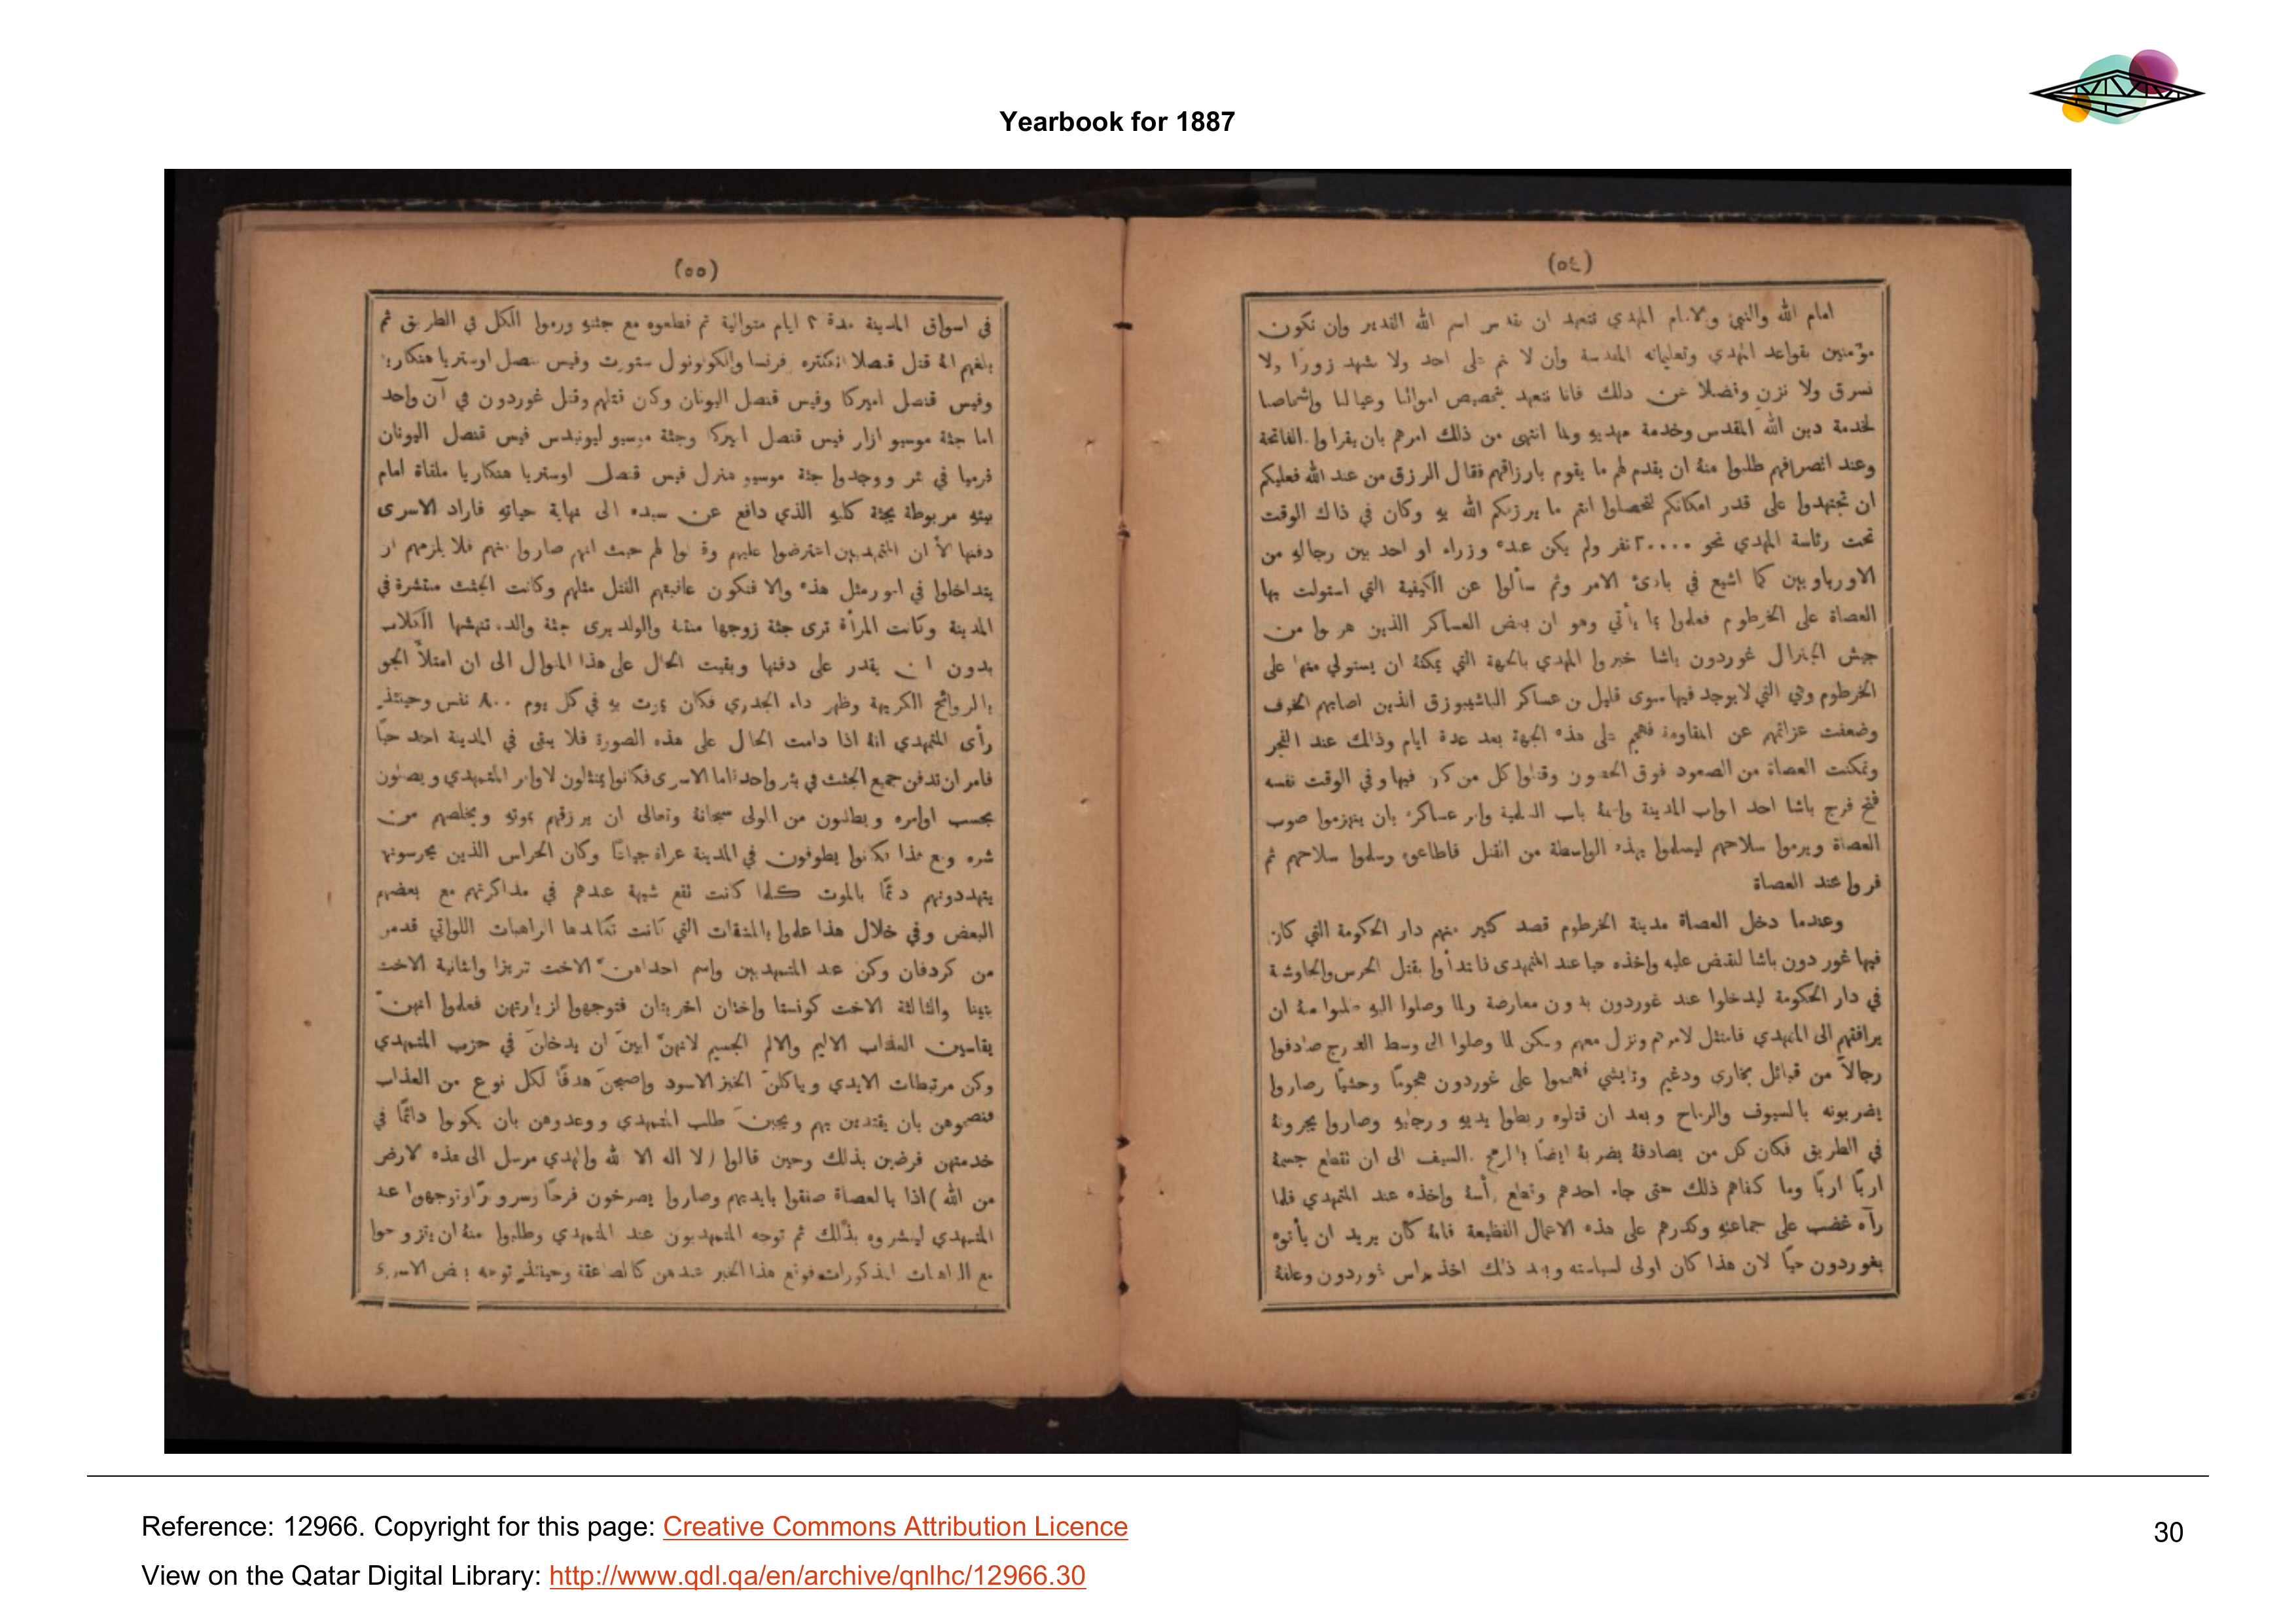 Yearbook for 1887
(٥٤)
امام الله والنبي والامام المهدي نتعهد ان نقدس اسم الله القدير وان نكون
مؤمنين بقواعد المهدي وتعليماته المقدسة وان لا ننم على احد ولا نشهد زورًا ولا
نسرق ولا نزن وفضلا عن ذلك فانا نتعهد بتخصيص اموالنا وعيالنا واشخاصنا
لخدمة دين الله المقدس وخدمة مهديه ولما انتهى من ذلك امرهم بان يقرا وا الفاتحة
وعند انصرافهم طلبوا منهُ ان يقدم لهم ما يقوم بارزاقهم فقال الرزق من عند الله فعليكم
ان تجتهدوا على قدر امكانكم لتحصلوا انتم ما يرزقكم الله به وكان في ذاك الوقت
تحت رئاسة المهدي نحو ٢٠٠٠٠ نفر ولم يكن عنده وزراء او احد بين رجاله من
الاورباويين كما اشيع في بادئ الامر وثم سألوا عن الكيفية التي استولت بها
العصاة على الخرطوم فعلموا بما يأتي وهو ان بعض العساكر الذين هربوا من
جيش الجنرال غوردون باشا خبروا المهدي بالجهة التي يمكنهُ ان يستولي منها على
الخرطوم وهي التي لا يوجد فيها سوى قليل من عساكر الباشيبوزق الذين اصابهم الخوف
وضعفت عزائمهم عن المقاومة فهجم على هذه الجهة بعد عدة ايام وذالك عند الفجر
وتمكنت العصاة من الصعود فوق الحصون وقتلوا كل من كان فيها وفي الوقت نفسه
فتح فرج باشا احد ابواب المدينة واسمهُ باب المسلمية وامر عساكره بان ينهزموا صوب
العصاة ويرموا سلاحهم ليسلموا بهذه الواسطة من القتل فاطاعوه وسلموا سلاحهم ثم
فروا عند العصاة
وعندما دخل العصاة مدينة الخرطوم قصد كثير منهم دار الحكومة التي كان
فيها غوردون باشا لنقض عليه واخذه حيا عند المتمهدى فابتدأوا بقتل الحرس والجاوشة
في دار الحكومة ليدخلوا عند غوردون بدون معارضة ولما وصلوا اليه طلبوا منهُ ان
يرافقهم الى المتمهدي فامتثل لامرهم ونزل معهم ولكن لما وصلوا الى وسط الدرج صادفوا
رجالاً من قبائل بخارى ودغيم وتايشي فهجموا على غوردون هجومًا وحشيًا وصاروا
يضربونه بالسيوف والرماح وبعد ان قتلوه ربطوا يديهِ ورجليهِ وصاروا يجرونهُ
في الطريق فكان كل من يصادفهُ يضربهُ ايضًا بالرمح والسيف الى ان تقطع جسمهُ
اربًا اربًا وما كفاهم ذلك حتى جاء احدهم وقطع رأسهُ واخذه عند المتمهدي فلما
رآه غضب على جماعتهِ وكدرهم على هذه الاعمال الفظيعة فانهُ كان يريد ان يأتوه
بغوردون حيًا لان هذا كان اولى لسياسته وبعد ذلك اخذ رأس غوردون وعلقهُ
(٥٥)
في اسواق المدينة مدة ٣ ايام متوالية ثم قطعوه مع جثتهِ ورموا الكل في الطريق ثم
بلغهم انهُ قتل قنصلا انكلتره وفرنسا والكولونول ستورت وفيس قنصل اوستريا هنكاريا
وفيس قنصل اميركا وفيس قنصل اليونان وكان قتلهم وقتل غوردون في آن واحد
اما جثة موسيو ازار فيس قنصل اميركا وجثة موسيو ليونيدس فيس قنصل اليونان
فرميا في بئر ووجدوا جثة موسيو هنزل فيس قنصل اوستريا هنكاريا ملقاة امام
بيتهِ مربوطة بجثة كلبهِ الذي دافع عن سيده الى نهاية حياتهِ فاراد الاسرى
دفنها الا ان المتمهديين اعترضوا عليهم وقالوا لهم حيث انهم صاروا منهم فلا يلزمهم ان
يتداخلوا في امور مثل هذه والا فتكون عاقبتهم القتل مثلهم وكانت الجثث منتشرة في
المدينة وكانت المرأة ترى جثة زوجها منتنة والولد يرى جثة والده تنهشها الكلاب
بدون ان يقدر على دفنها وبقيت الحال على هذا المنوال الى ان امتلأ الجو
بالروائح الكريهة وظهر داء الجدري فكان يموت بهِ في كل يوم ٨٠٠ نفس وحينئذٍ
رأى المتمهدي انهُ اذا دامت الحال على هذه الصورة فلا يبقى في المدينة احد حيًا
فامر ان تدفن جميع الجثث في بئر واحد اما الاسرى فكانوا يمتثلون لاوامر المتمهدي ويصلون
بحسب اوامره ويطلبون من المولى سبحانهُ وتعالى ان يرزقهم بموتهِ ويخلصهم من
شره ومع هذا كانوا يطوفون في المدينة عراة جياعًا وكان الحراس الذين يحرسونهم
يتهددونهم دائمًا بالموت كلما كانت تقع شبهة عندهم في مذاكرتهم مع بعضهم
البعض وفي خلال هذا علموا بالمشقات التي كانت تكابدها الراهبات اللواتي قدمن
من كردفان وكن عند المتمهديين واسم احداهنّ الاخت تريزا والثانية الاخت
بتينا والثالثة الاخت كونستا واختان اخريتان فتوجهوا لزيارتهن فعلموا انهنّ
يقاسين العذاب الاليم والالم الجسيم لانهنّ ابينَ ان يدخلنَ في حزب المتمهدي
وكن مرتبطات الايدي وياكلنَ الخبز الاسود واصبحنَ هدفًا لكل نوع من العذاب
فنصحوهن بان يقتدين بهم ويجبنَ طلب المتمهدي ووعدوهن بان يكونوا دائمًا في
خدمتهن فرضين بذلك وحين قالوا (لا اله الا الله والمهدي مرسل الى هذه الارض
من الله) اذا بالعصاة صفقوا بايديهم وصاروا يصرخون فرحًا وسرورًا وتوجهوا عند
المتمهدي ليبشروه بذلك ثم توجه المتمهديون عند المتمهدي وطلبوا منهُ ان يتزوجوا
مع الراهبات المذكورات فوقع هذا الخبر عندهن كالصاعقة وحينئذٍ توجه بعض الاسرى
Reference: 12966. Copyright for this page: Creative Commons Attribution Licence
View on the Qatar Digital Library: http://www.qdl.qa/en/archive/qnlhc/12966.30
30